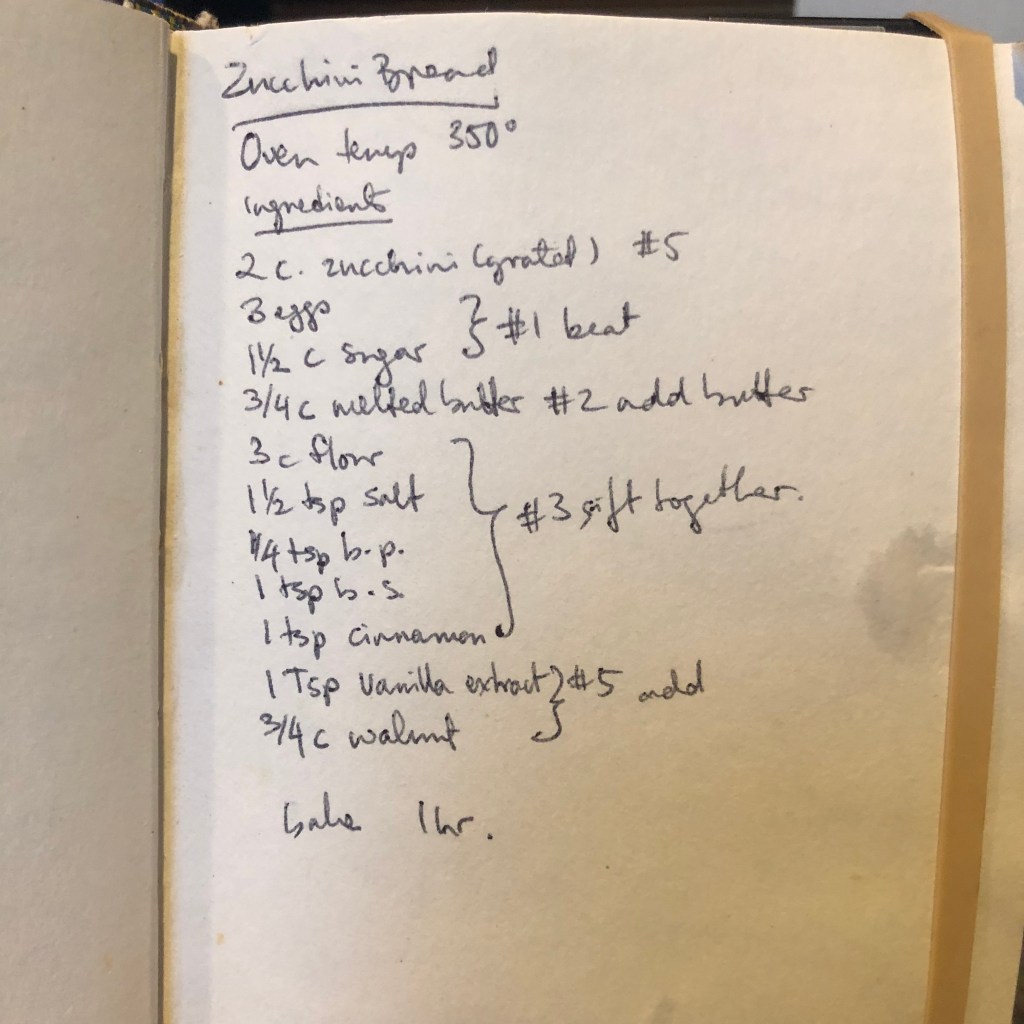 Zucchini Bread
Oven temp 350°
ingredients
2 c. zucchini (grated) #5
3 eggs
1½ c sugar } #1 beat
3/4 c melted butter #2 add butter
3 c flour
1½ tsp salt } #3 sift together.
1/4 tsp b.p.
1 tsp b.s.
1 tsp cinnamon
1 Tsp vanilla extract } #5 add
3/4 c walnut
bake 1 hr.